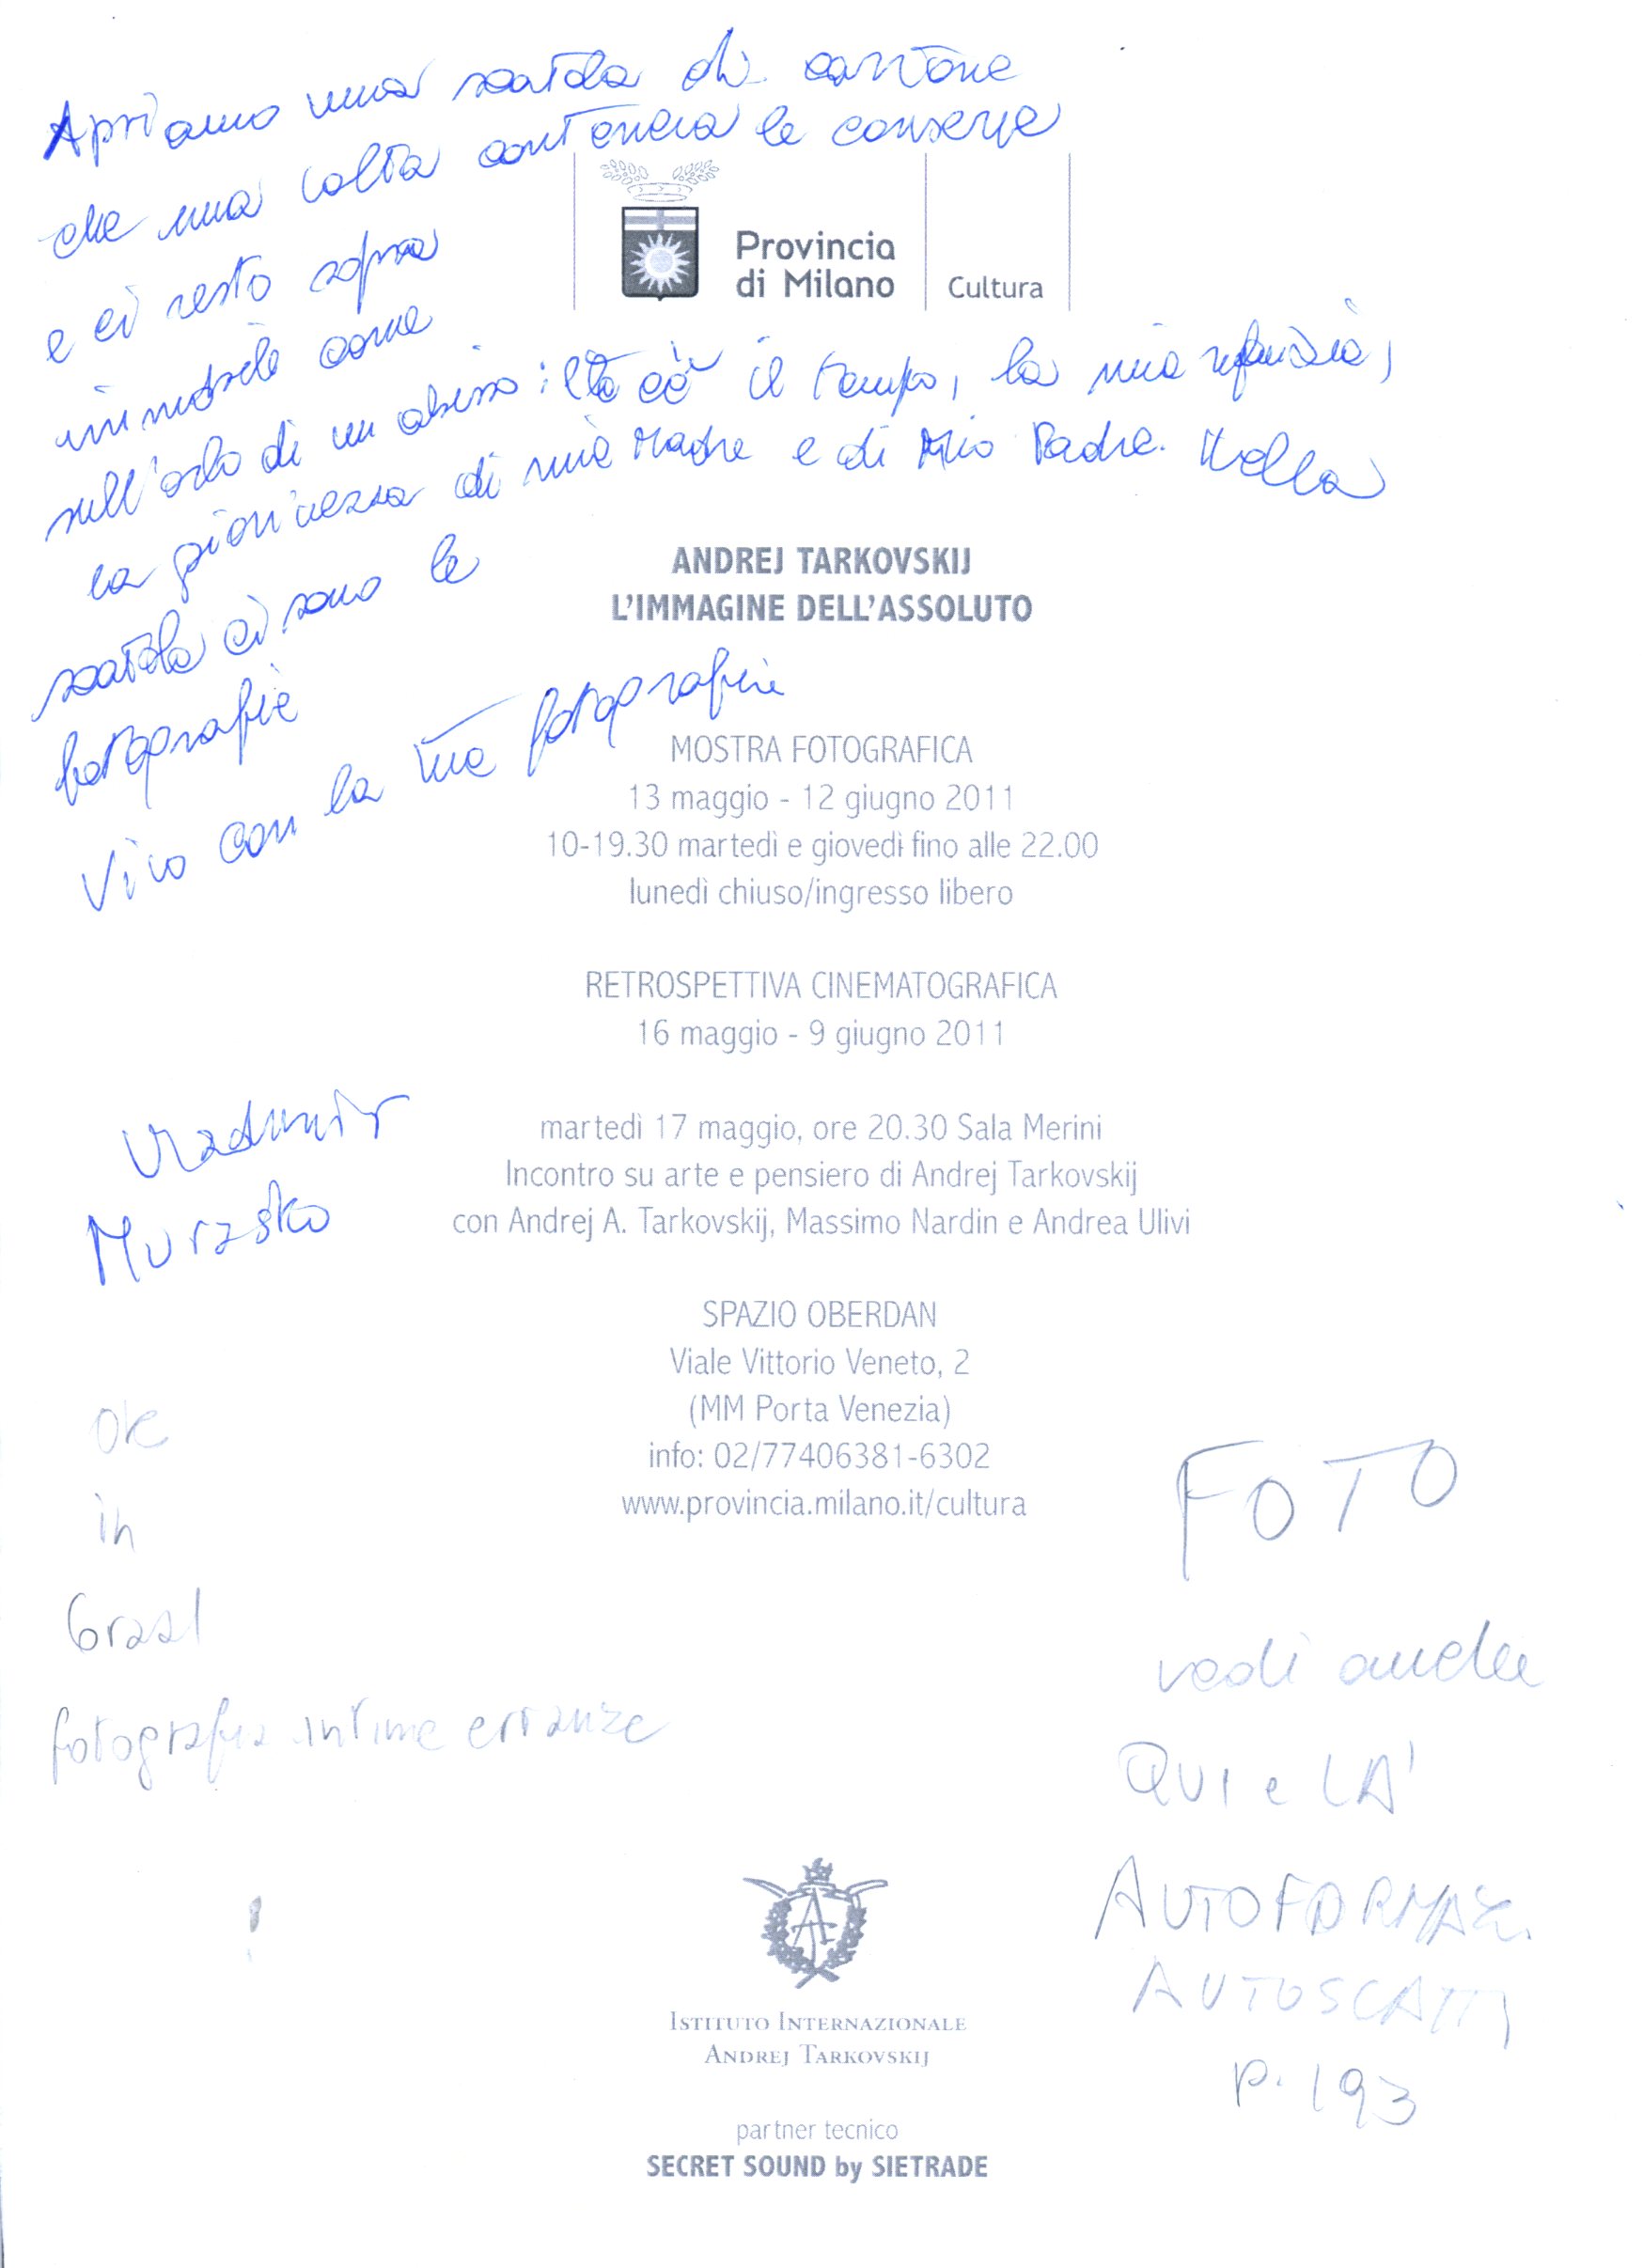 Apriamo una scatola di cartone
che una volta conteneva le conserve
e ci resto sopra
immobile come
sull'orlo di un abisso: lì c'è il tempo, la mia infanzia,
la giovinezza di mia Madre e di Mio Padre. Nella
scatola ci sono le
fotografie
Vivo con la tua fotografia
Provincia
di Milano
Cultura
ANDREJ TARKOVSKIJ
L'IMMAGINE DELL'ASSOLUTO
MOSTRA FOTOGRAFICA
13 maggio - 12 giugno 2011
10-19.30 martedì e giovedì fino alle 22.00
lunedì chiuso/ingresso libero
RETROSPETTIVA CINEMATOGRAFICA
16 maggio - 9 giugno 2011
martedì 17 maggio, ore 20.30 Sala Merini
Incontro su arte e pensiero di Andrej Tarkovskij
con Andrej A. Tarkovskij, Massimo Nardin e Andrea Ulivi
Vladimir
Murasko
SPAZIO OBERDAN
Viale Vittorio Veneto, 2
(MM Porta Venezia)
info: 02/77406381-6302
www.provincia.milano.it/cultura
OK
in
Graal
fotografia intime erranze
FOTO
vedi anche
QUI e LA'
AUTOFORMAZ.
AUTOSCATTI
p. 193
ISTITUTO INTERNAZIONALE
ANDREJ TARKOVSKIJ
partner tecnico
SECRET SOUND by SIETRADE